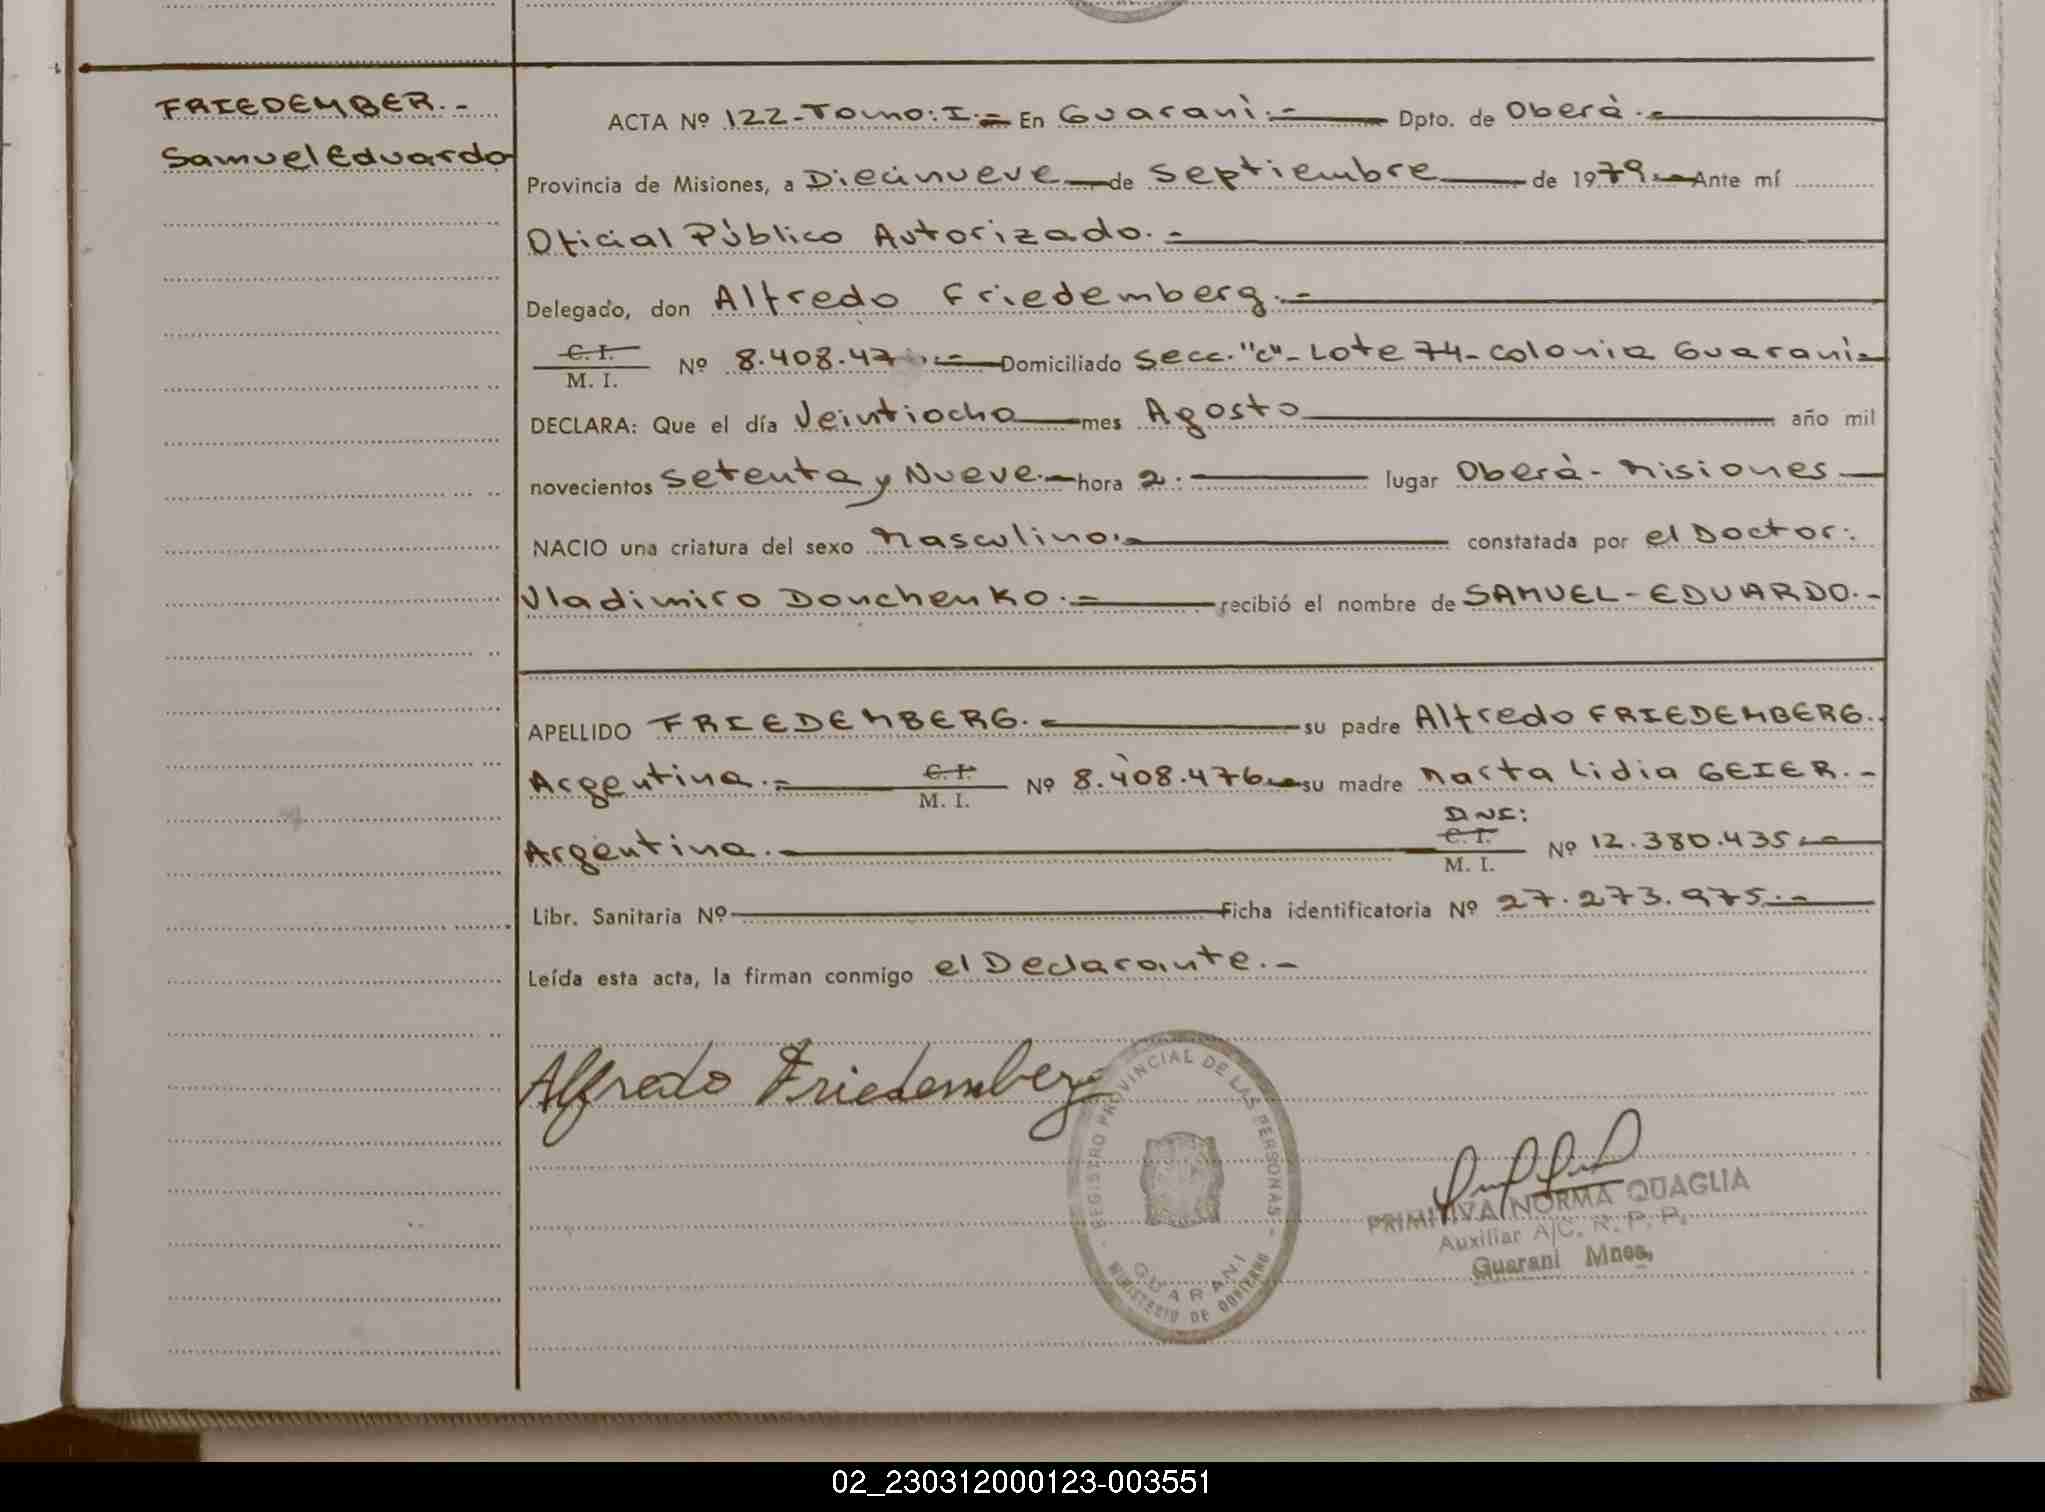 FRIEDEMBER.-
Samuel Eduardo
ACTA Nº 122-Tomo: I.- En Guaraní.- Dpto. de Oberá.-
Provincia de Misiones, a Diecinueve de septiembre de 1979.- Ante mí
Oficial Público Autorizado.-
Delegado, don Alfredo Friedemberg.-
C. I.
M. I. Nº 8.408.47 .- Domiciliado Secc. "C"- Lote 74- Colonia Guaraní-
DECLARA: Que el día Veintiocho mes Agosto año mil
novecientos setenta y Nueve.- hora 2. lugar Oberá- Misiones
NACIO una criatura del sexo Masculino.- constatada por el Doctor:
Vladimiro Donchenko.- recibió el nombre de SAMUEL-EDUARDO.-
APELLIDO FRIEDEMBERG. su padre Alfredo FRIEDEMBERG.
Argentina.- C. I.
M. I. Nº 8.408.476 su madre Marta Lidia GEIER.-
DNI:
Argentina.- C. I.
M. I. Nº 12.380.435.-
Libr. Sanitaria Nº Ficha identificatoria Nº 27.273.975.-
Leída esta acta, la firman conmigo el Declarante.-
Alfredo Friedemberg
REGISTRO PROVINCIAL DE LAS PERSONAS
GUARANI
MINISTERIO DE GOBIERNO
PRIMITIVA NORMA QUAGLIA
Auxiliar A/C. R. P. P.
Guaraní Mnes.
02_230312000123-003551